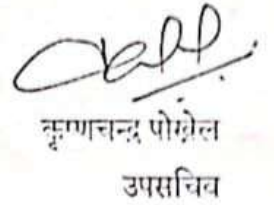 कृष्णचन्द्र पोखेल
उपसचिव